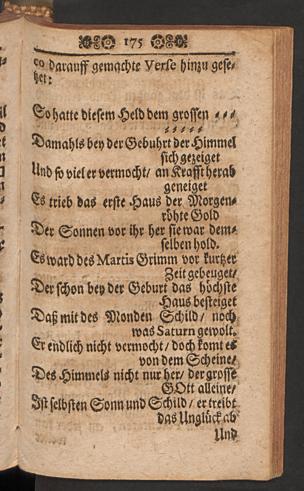 175
co darauff gemachte Verse hinzu gese-
tzet:
So hatte diesem Held dem grossen - - -
- - - - -
Damahls bey der Gebuhrt der Himmel
sich gezeiget
Und so viel er vermocht/ an Krafft herab
geneiget
Es trieb das erste Haus der Morgen-
röhte Gold
Der Sonnen vor ihr her sie war dem-
selben hold.
Es ward des Martis Grimm vor kurtzer
Zeit gebeuget/
Der schon bey der Geburt das höchste
Haus besteiget
Daß mit des Monden Schild/ noch
was Saturn gewolt.
Er endlich nicht vermocht/ doch komt es
von dem Scheine/
Des Himmels nicht nur her/ der grosse
GOtt alleine/
Ist selbsten Sonn und Schild/ er treibt
das Unglück ab
Und